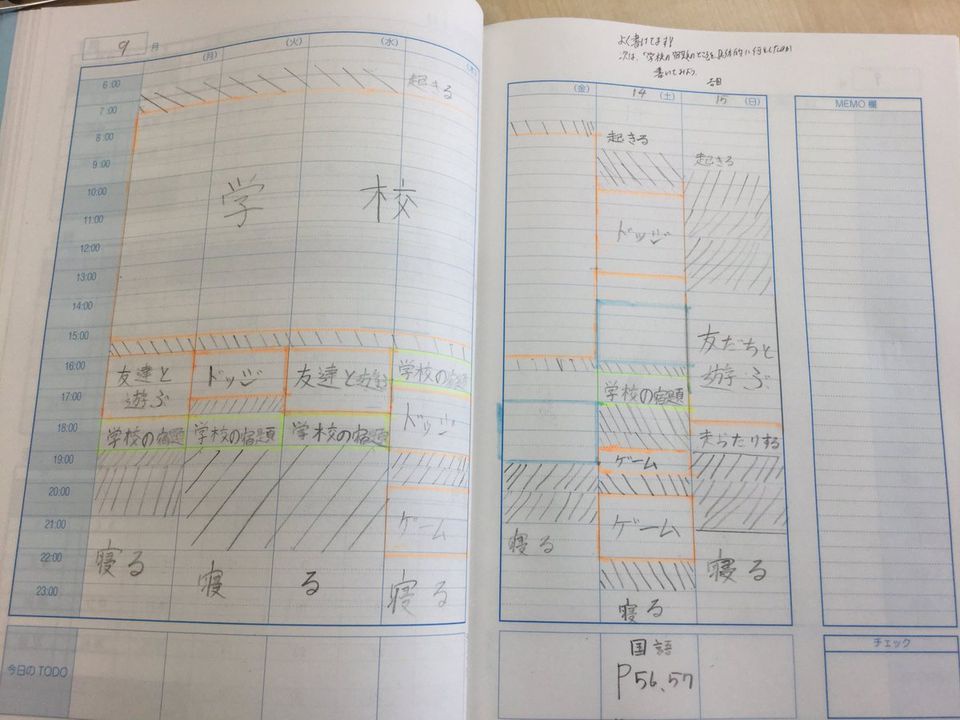 9 月
(月)
(火)
(水)
(木)
6:00
7:00
8:00
9:00
10:00
11:00
12:00
13:00
14:00
15:00
16:00
17:00
18:00
19:00
20:00
21:00
22:00
23:00
起きる
学校
友達と
遊ぶ
ドッジ
友達と遊ぶ
学校の宿題
ドッジ
学校の宿題
学校の宿題
学校の宿題
ゲーム
寝る
寝る
寝る
今日のTODO
よく書けてます!
次は、「学校の宿題」のところを、具体的に何をしたのか
書いてみよう。
(金)
14 (土)
15 (日)
MEMO 欄
起きる
起きる
ドッジ
友だちと
遊ぶ
学校の宿題
ゲーム
ゲーム
寝る
寝る
寝る
国語
P56,57
チェック